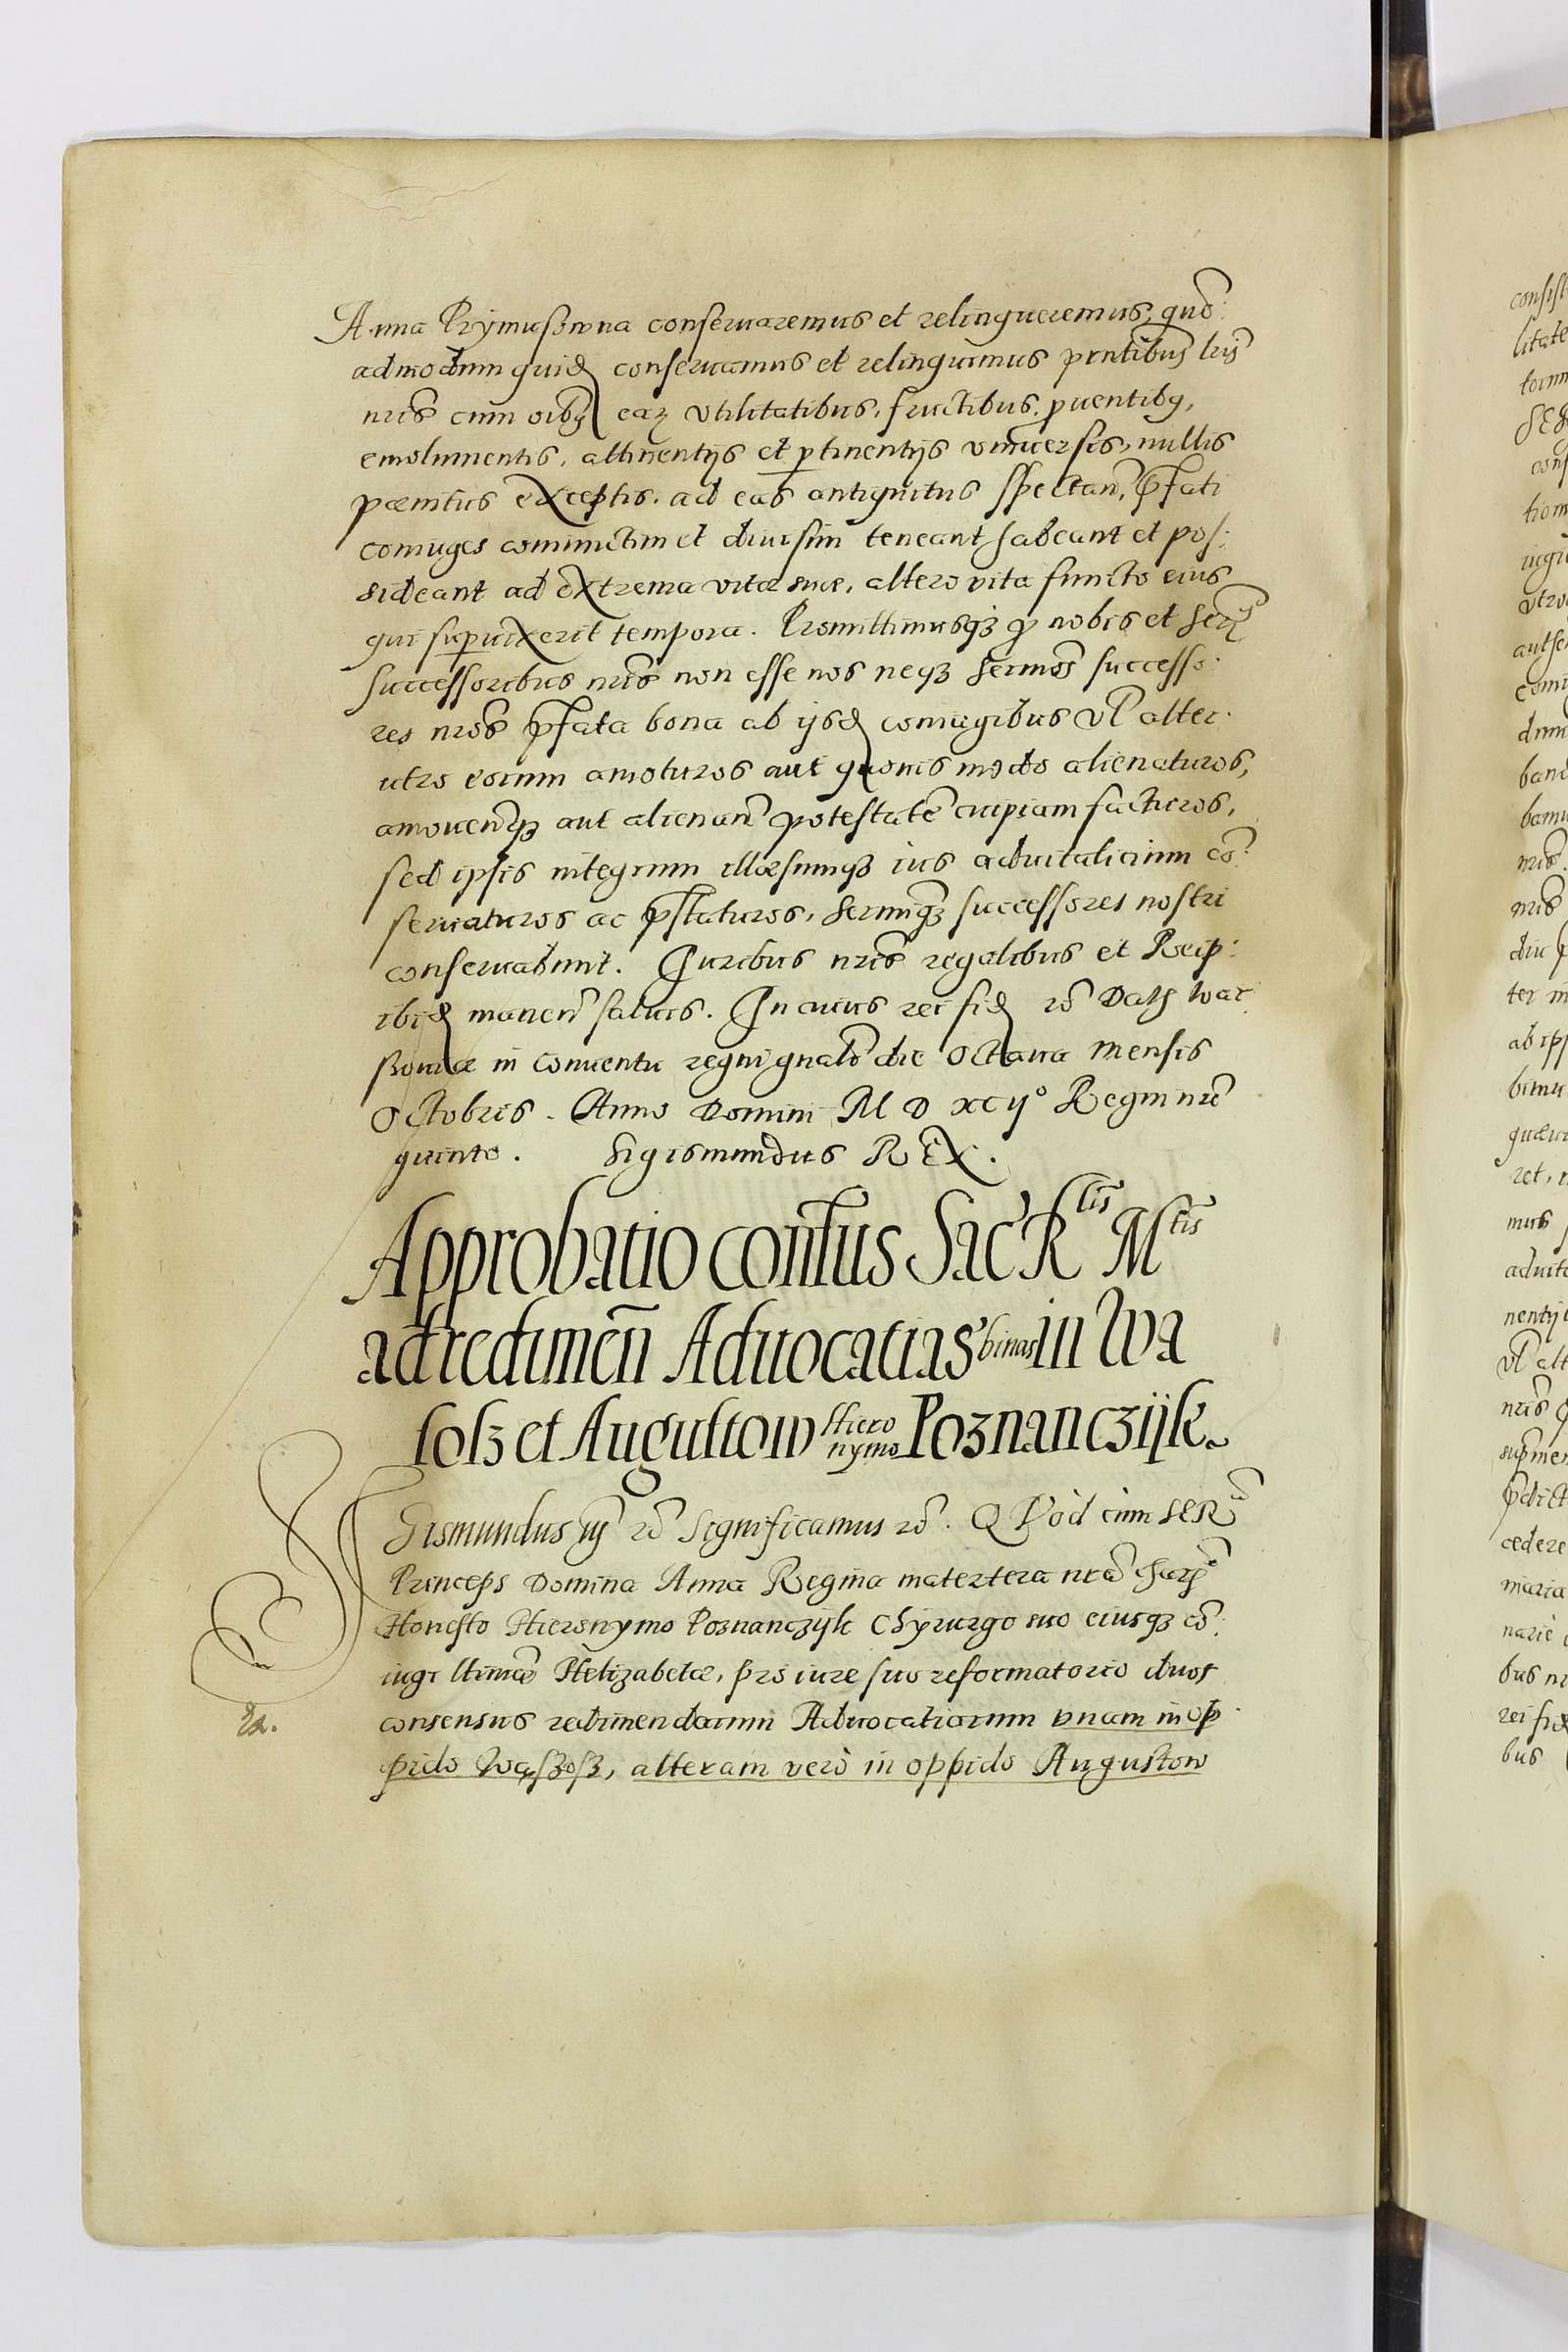 Anna Prÿmusowna conseruaremus et relinqueremus, quẽ:
admodum quidẽ conseruamus et relinquimus prntibus lris
nris cum oibꝫ eaꝝ vtilitatibus, fructibus, ꝓuentibꝫ,
emolumentis, attinentijs et ꝑtinentijs vniuersis, nullis
pœnitus exceptis. ad eas antiquitus spectañ, p̃fati
coniuges coniunctim et diuisim teneant habeant et pos:
sideant ad extrema vitæ suæ, altero vita functo eius
qui suꝑuixerit tempora. Promittimusqꝫ ꝓ nobis et Serᷠ
successoribus nris non esse nos neqꝫ Sermos successo:
res nros p̃fata bona ab ijsdẽ coniugibus vl alter:
utro eorum amoturos aut quouis modo alienaturos,
amouendiqꝫ aut alienañ potestatẽ cuipiam facturos,
sed ipsis integrum illæsumqꝫ ius aduitalicium cõ:
seruaturos ac p̃staturos, Sermiqꝫ successores nostri
conseruabunt. Iuribus nris regalibus et Reip:
ibidẽ maneñ saluis. In cuius rei fidẽ rõ Datꝫ War:
souiæ in conuentu regni gnali die octaua mensis
Octobris. Anno Domini M D xcijº Regni nri
quinto. Sigismundus REX.
Approbatio consẽsus Sac R lis M tis
ad redimeñ Aduocatias binas in Wa
sosz et Augustow Hiero
nymo Poznanczijk.
SIgismundus iij rõ Significamus rõ. QVod cum SERᵐᵃ
Princeps Domina Anna Regina matertera nra Charᵐᵃ
Honesto Hieronymo Poznanczijk Chÿrurgo suo eiusqꝫ cõ:
iugi ltimæ Helizabetæ, pro iure suo reformatorio duos
consensus redimendarum Aduocatiarum vnam in op
pido Wąszosz, alteram verò in oppido Augustow